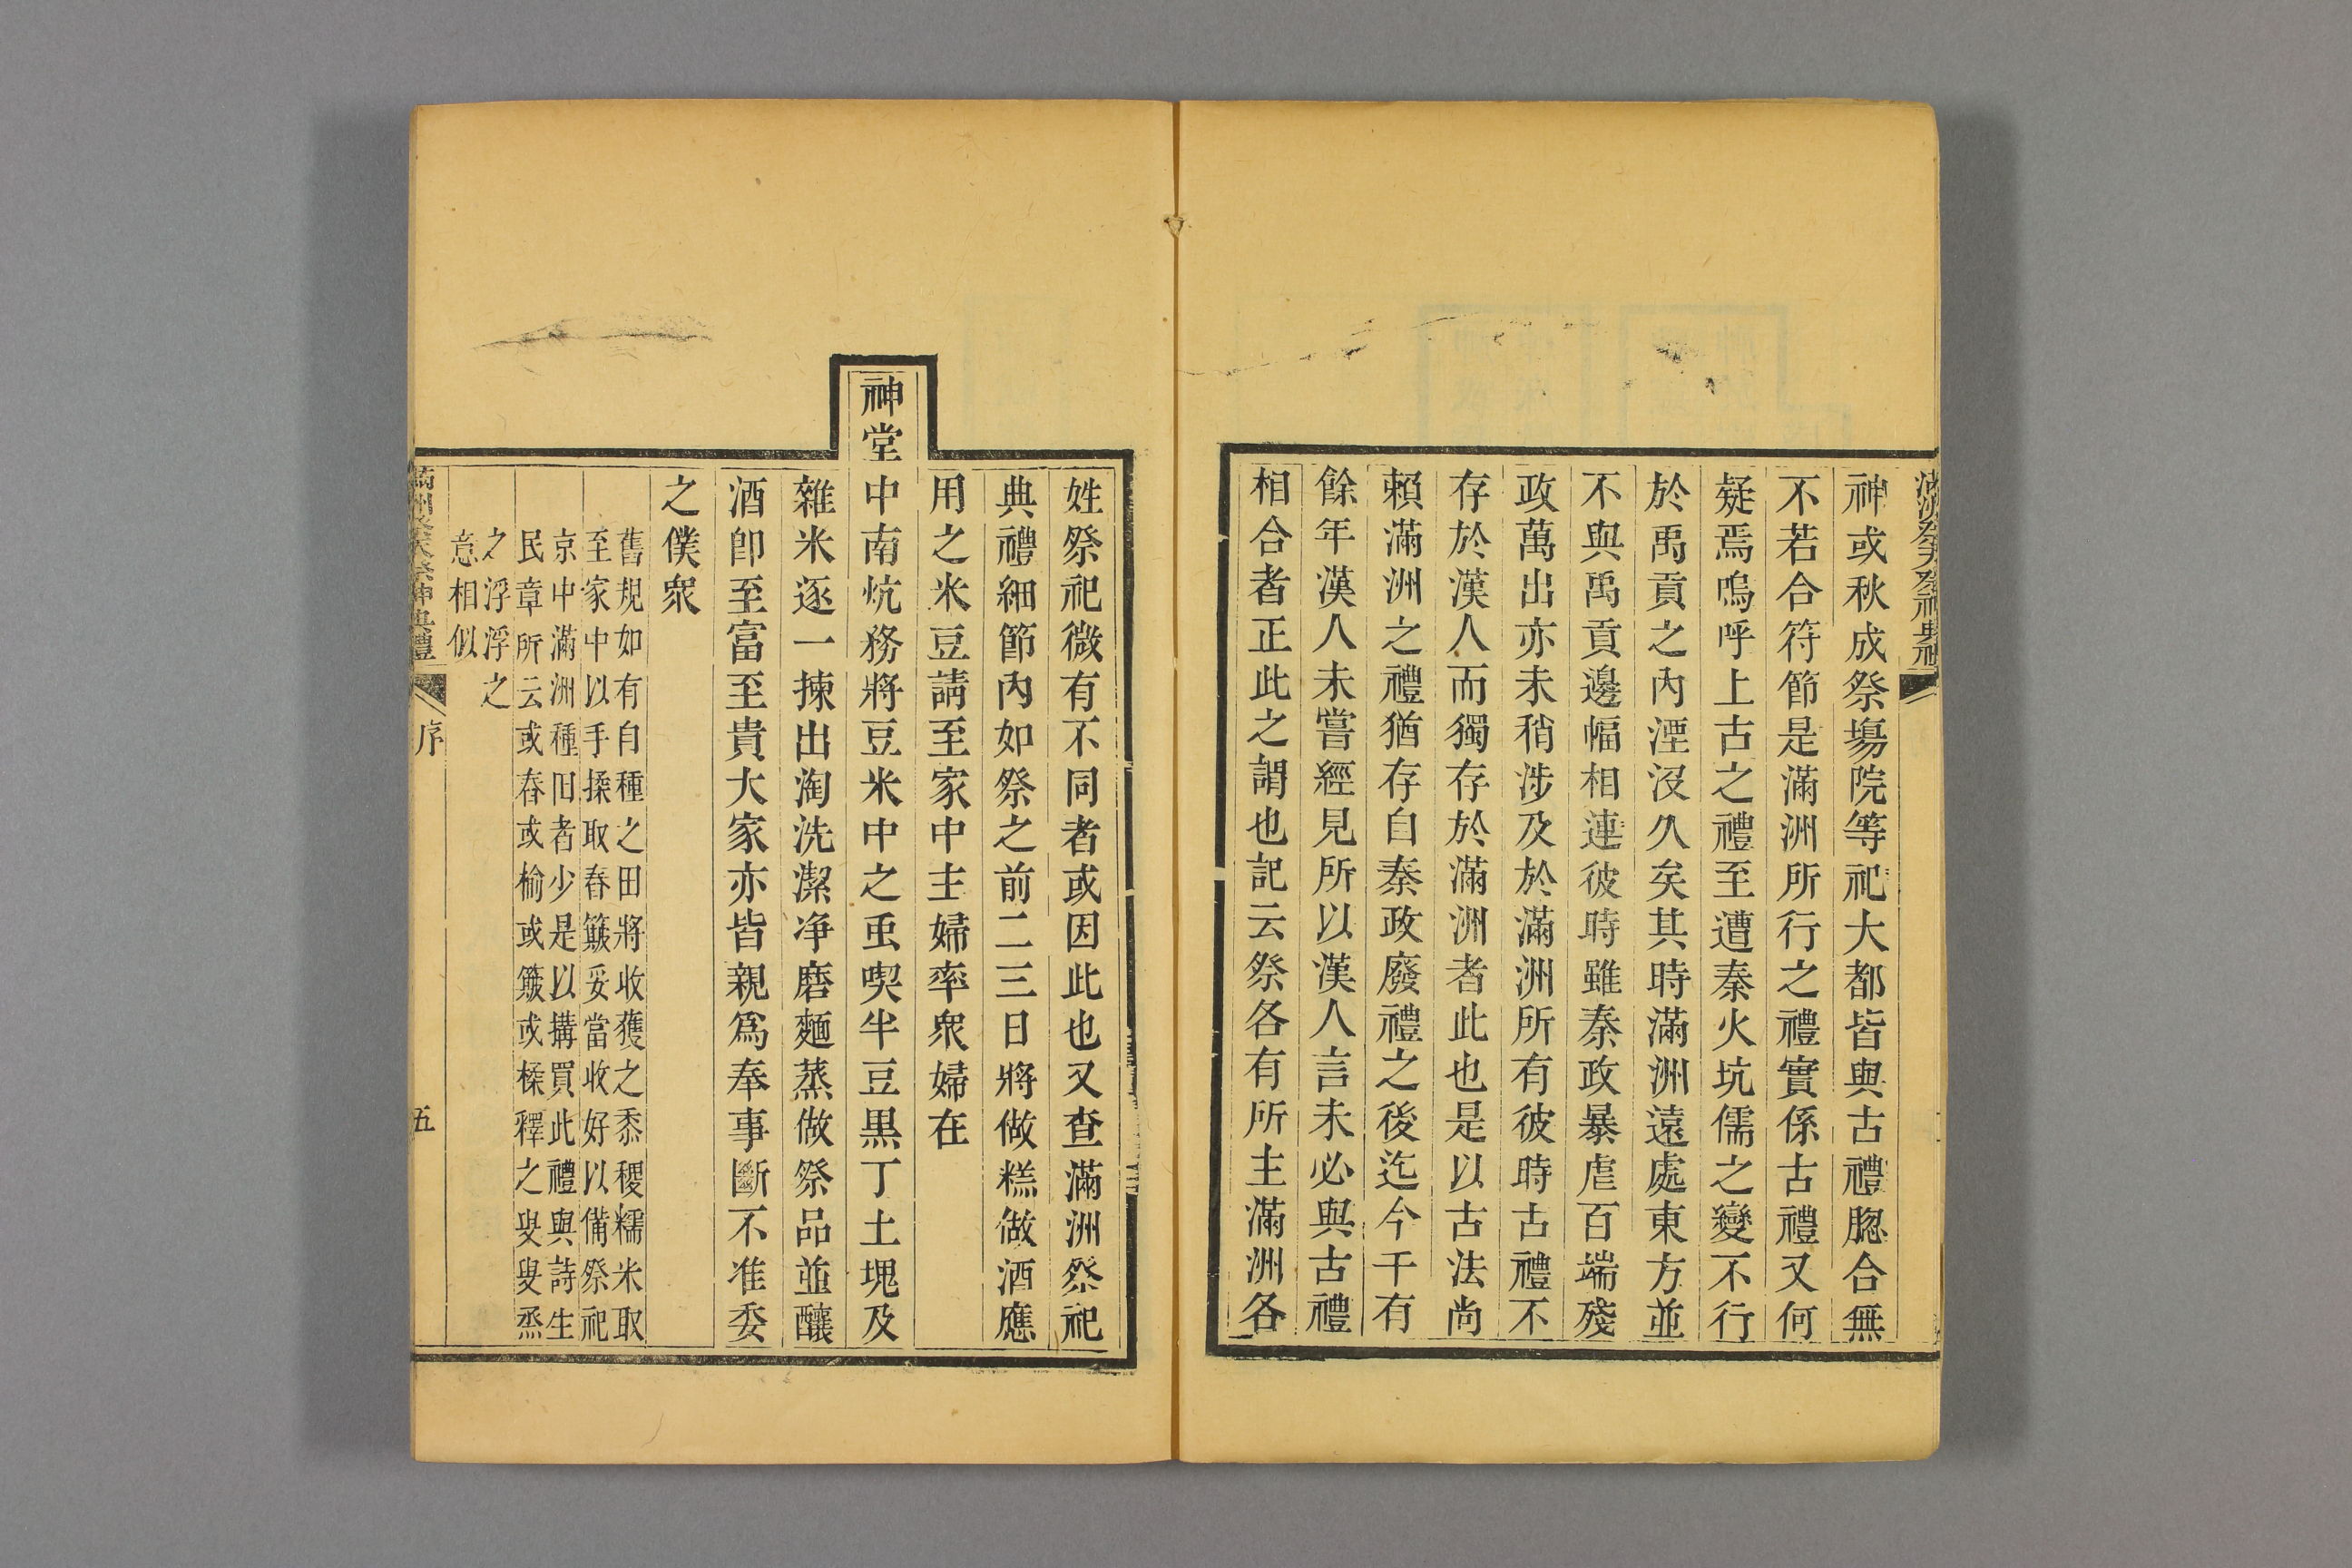 滿洲祭天祭神典禮
神或秋成祭塲院等祀大都皆與古禮脗合無
不若合符節是滿洲所行之禮實係古禮又何
疑焉嗚呼上古之禮至遭秦火坑儒之變不行
於禹貢之內湮没久矣其時滿洲遠處東方並
不與禹貢邊幅相連彼時雖秦政暴虐百端殘
政萬出亦未稍涉及於滿洲所有彼時古禮不
存於漢人而獨存於滿洲者此也是以古法尚
賴滿洲之禮猶存自秦政廢禮之後迄今千有
餘年漢人未嘗經見所以漢人言未必與古禮
相合者正此之謂也記云祭各有所主滿洲各
姓祭祀微有不同者或因此也又查滿洲祭祀
典禮細節內如祭之前二三日將做糕做酒應
用之米豆請至家中主婦率衆婦在
神堂中南炕務將豆米中之虫喫半豆黑丁土塊及
雜米逐一揀出淘洗潔凈磨麵蒸做祭品並釀
酒卽至富至貴大家亦皆親爲奉事斷不准委
之僕衆
舊規如有自種之田將收獲之黍稷糯米取
至家中以手揉取舂簸妥當收好以備祭祀
京中滿洲種田者少是以搆買此禮與詩生
民章所云或舂或榆或簸或楺釋之叟叟烝
之浮浮之
意相似
滿洲祭天祭神典禮
序
五